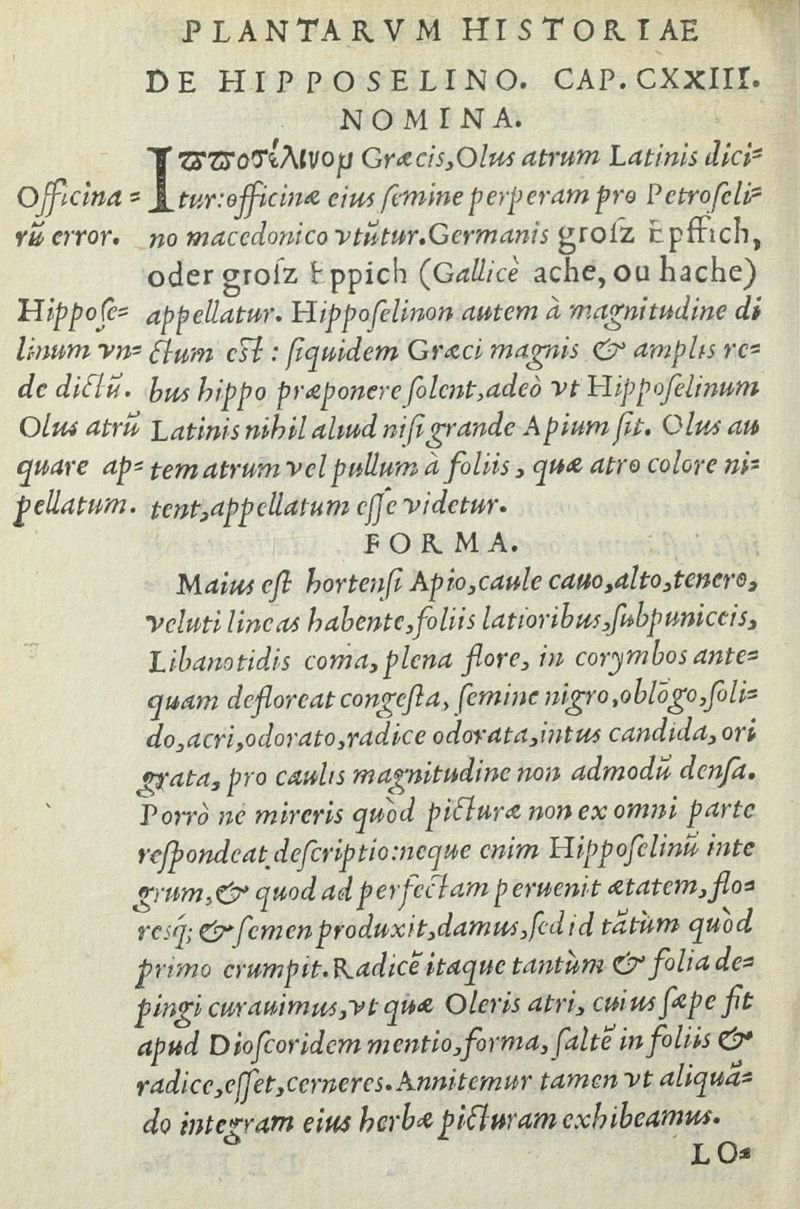 PLANTARVM HISTORIAE
DE HIPPOSELINO. CAP. CXXIII.
NOMINA.
Ἱπποσέλινομ Græcis, Olus atrum Latinis dici⸗
tur: officinæ eius ſemine perperam pro Petroſeli⸗
no macedonico vtũtur. Germanis groſz Epffich,
oder groſz Eppich (Gallicè ache, ou hache)
appellatur. Hippoſelinon autem à magnitudine di
ctum eſt: ſiquidem Græci magnis & amplis re⸗
bus hippo præponere ſolent, adeò vt Hippoſelinum
Latinis nihil aliud niſi grande Apium ſit. Olus au
tem atrum vel pullum à foliis, quæ atro colore ni⸗
tent, appellatum eſſe videtur.
Officina⸗
rũ error.
Hippoſe⸗
linum vn⸗
de dictũ.
Olus atrũ
quare ap⸗
pellatum.
FORMA.
Maius eſt hortenſi Apio, caule cauo, alto, tenero,
veluti lineas habente, foliis latioribus, ſubpuniceis,
Libanotidis coma, plena flore, in corymbos ante⸗
quam defloreat congeſta, ſemine nigro, oblõgo, ſoli⸗
do, acri, odorato, radice odorata, intus candida, ori
grata, pro caulis magnitudine non admodũ denſa.
Porrò ne mireris quòd picturæ non ex omni parte
reſpondeat deſcriptio: neque enim Hippoſelinũ inte
grum, & quod ad perfectam peruenit ætatem, flo⸗
resq́; & ſemen produxit, damus, ſed id tãtùm quòd
primo erumpit. Radicẽ itaque tantùm & folia de⸗
pingi curauimus, vt quæ Oleris atri, cuius ſæpe fit
apud Dioſcoridem mentio, forma, ſaltẽ in foliis &
radice, eſſet, cerneres. Annitemur tamen vt aliquã⸗
do integram eius herbæ picturam exhibeamus.
LO⸗